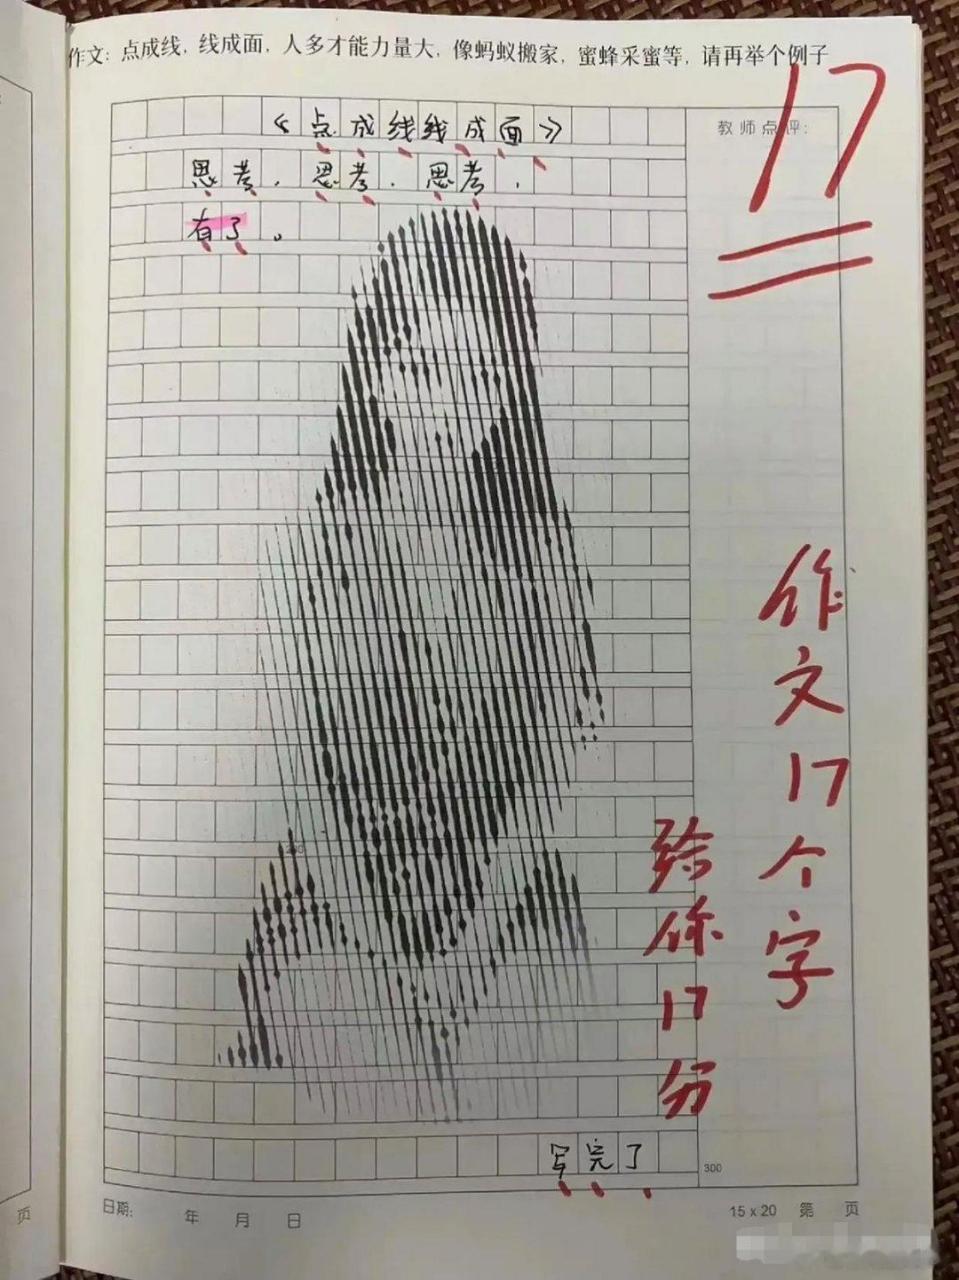 作文：点成线，线成面，人多才能力量大，像蚂蚁搬家，蜜蜂采蜜等，请再举个例子
17
教师点评：
《点成线线成面》
思考，思考，思考，
有了。
作文17个字
给你17分
200
写完了
300
日期： 年 月 日
15 x 20 第 页
页